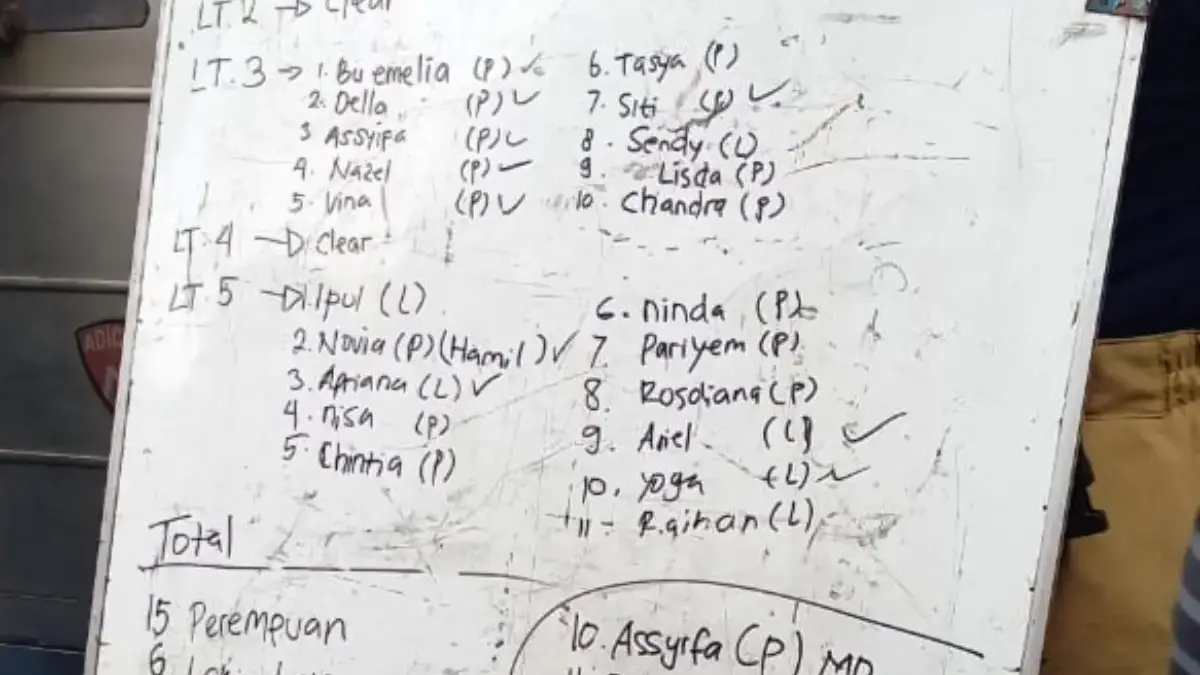 LT.2 → Clear
LT.3 → 1. Bu emelia (P) ✓
2. Della (P) ✓
3 Assyifa (P) ✓
4. Nazel (P) ✓
5. Vina (P) ✓
6. Tasya (P)
7. Siti (P) ✓
8. Sendy (L)
9. Lisda (P)
10. Chandra (P)
LT.4 → Clear
LT.5 → 1. Ipul (L)
2. Novia (P) (Hamil) ✓
3. Apriana (L) ✓
4. nisa (P)
5. Chintia (P)
6. ninda (P)
7 Pariyem (P)
8. Rosdiana (P)
9. Ariel (L) ✓
10. Yoga (L) ✓
11 - Raihan (L)
Total
15 Perempuan
6
10. Assyifa (P) MD
ADIC